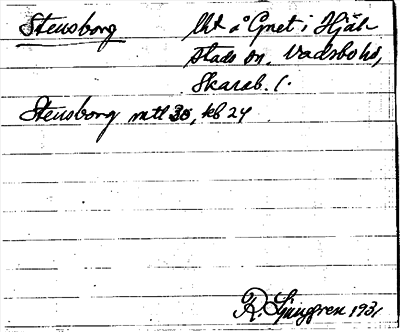 Stensborg
lht å Gnet i Hjäl-
stads sn. Vadsbo hd,
Skarab. l.
Stensborg mtl 35, kb 24
R. Ljunggren 1931